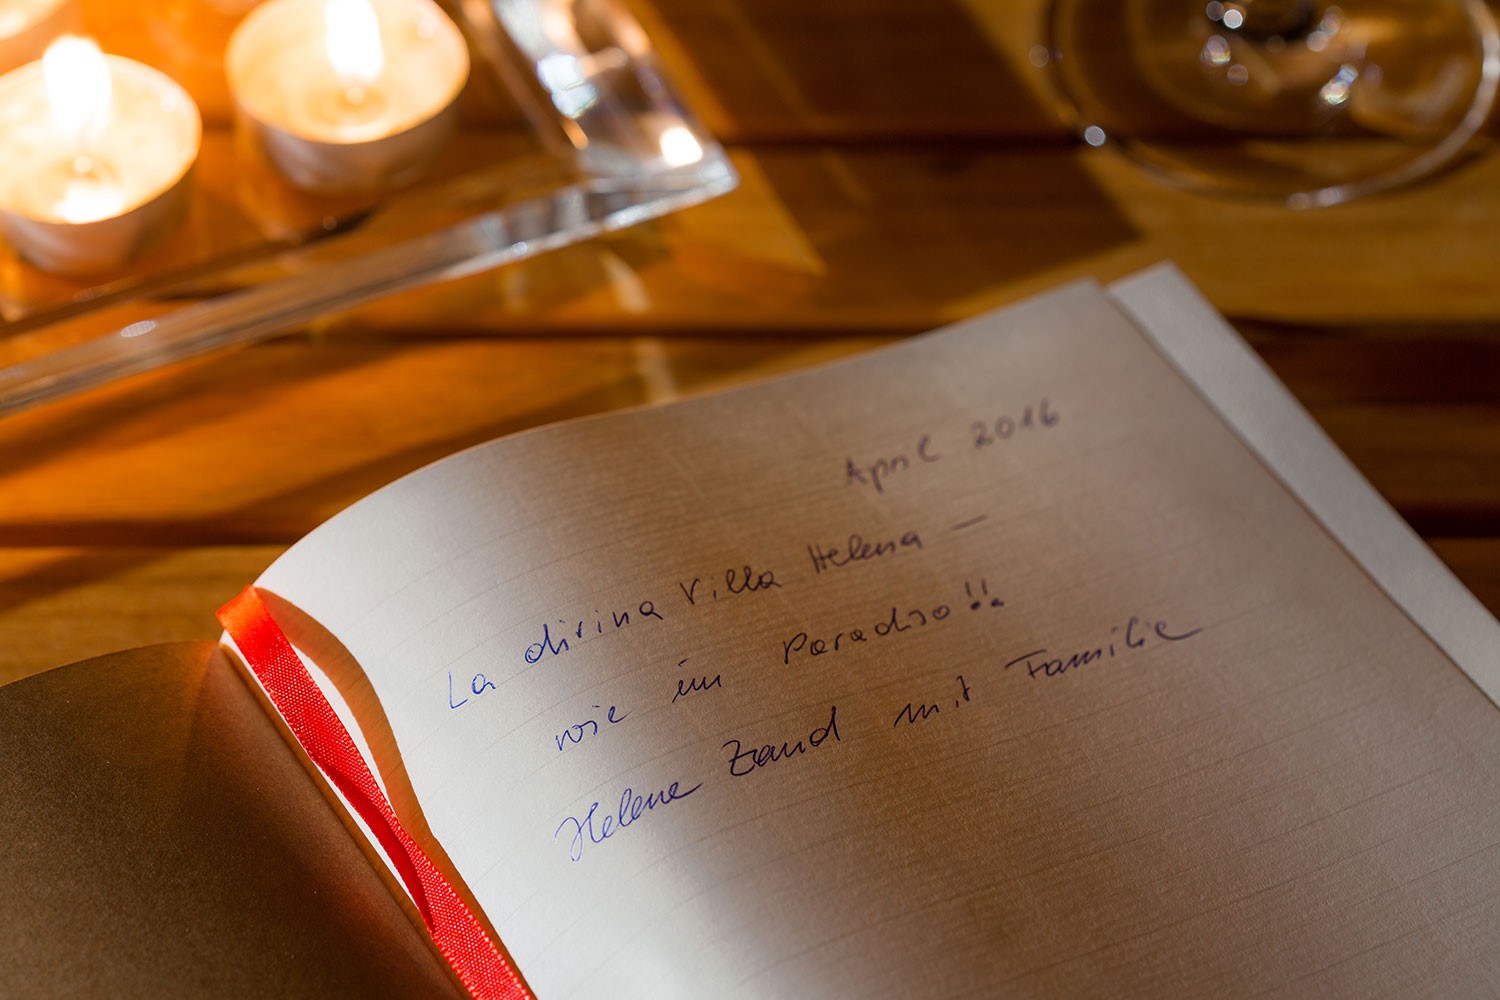 April 2016
La divina Villa Helena –
wie im Paradiso!!
Helene Zand mit Familie